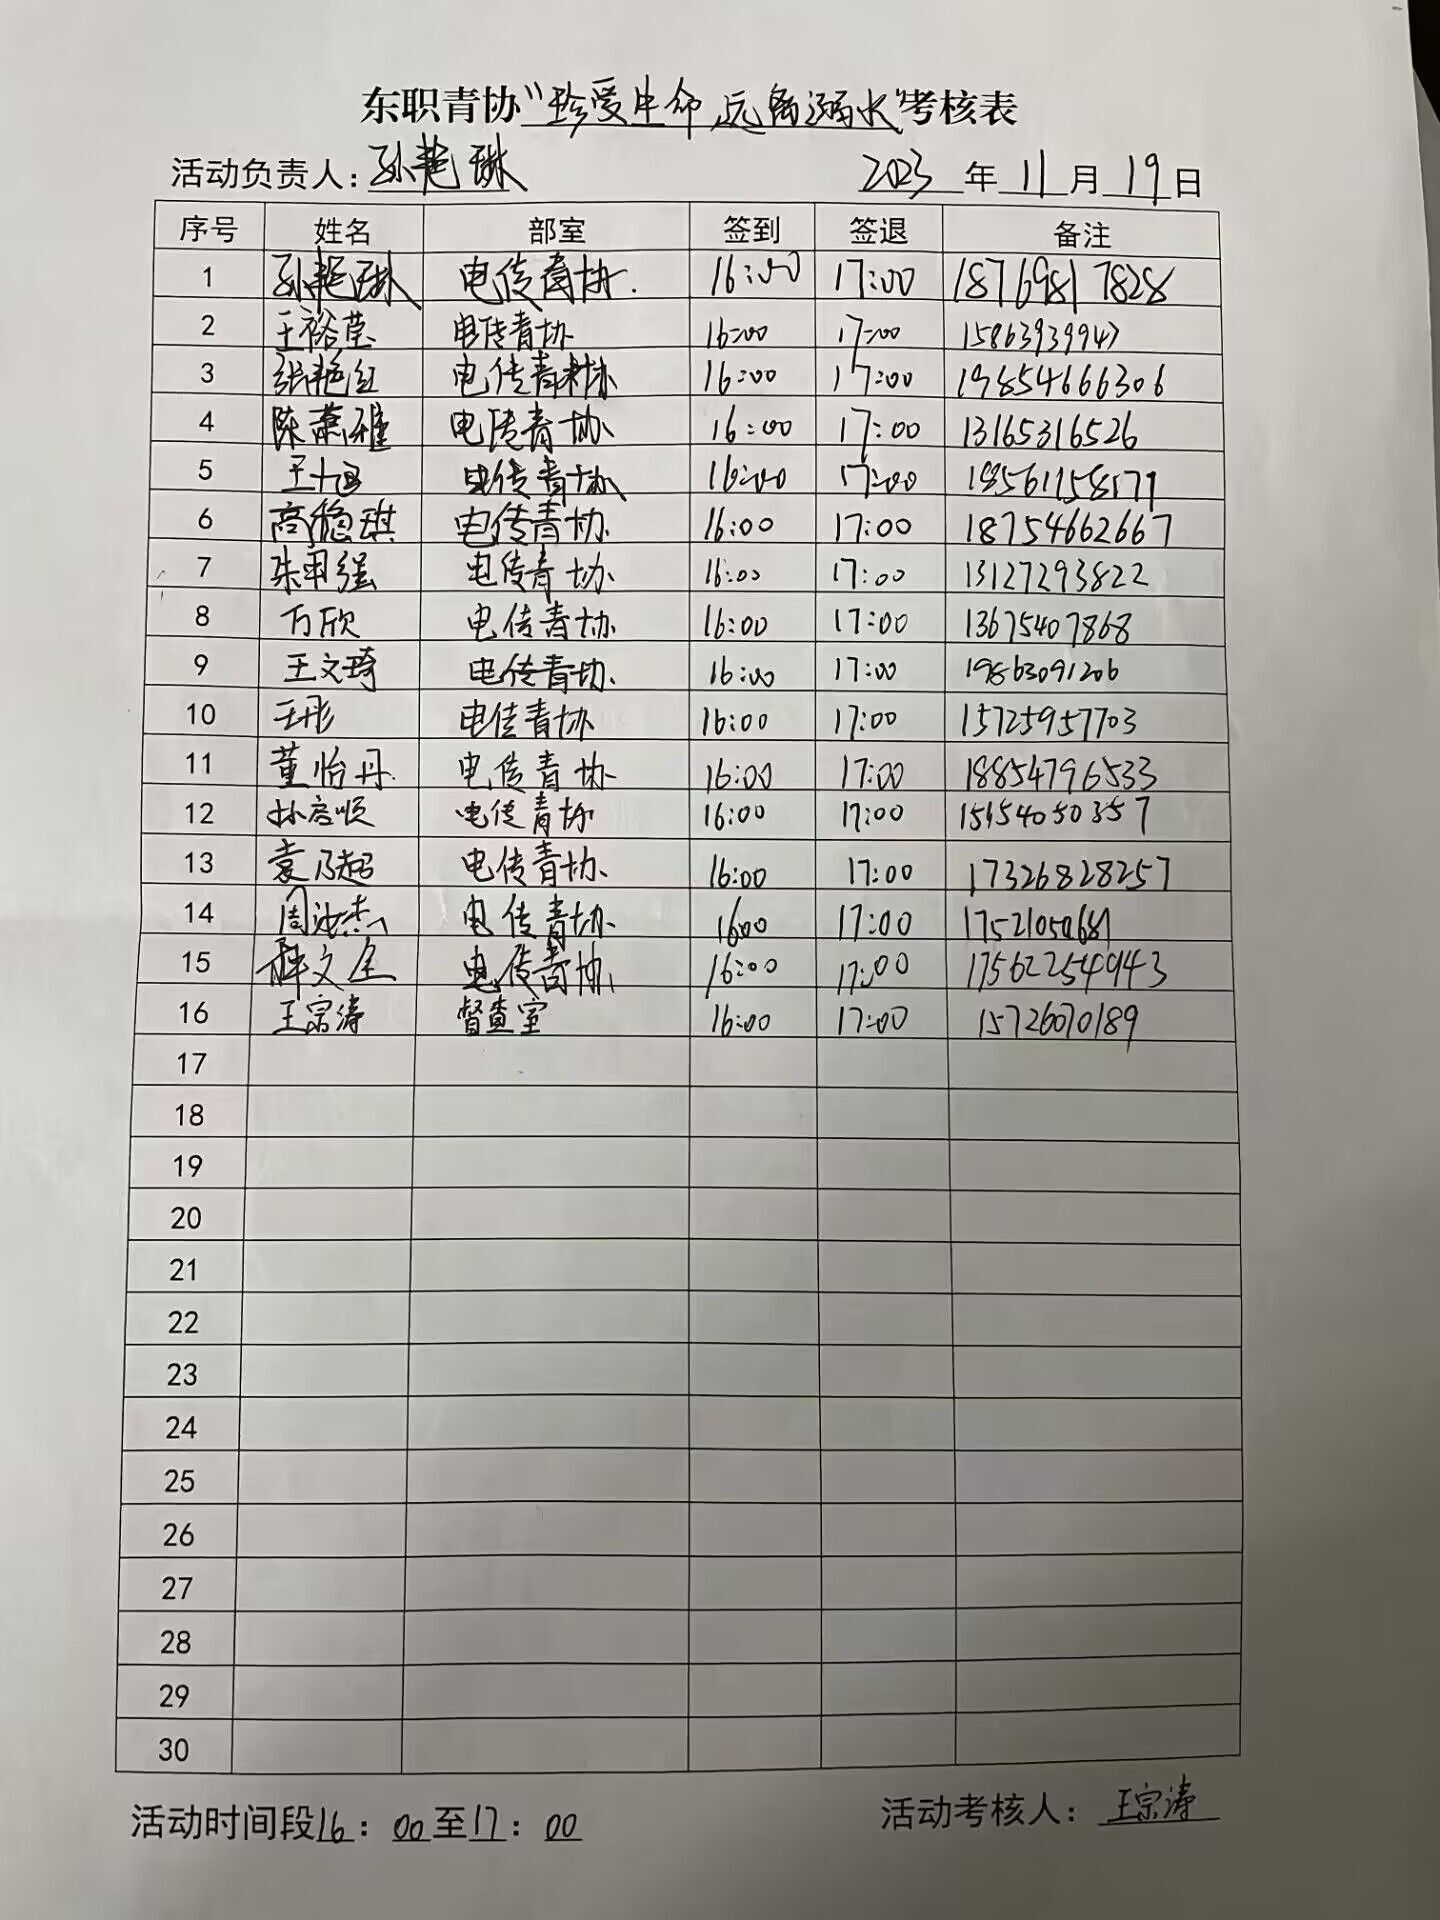 东职青协“珍爱生命,远离溺水”考核表
活动负责人: 孙艳琳 2023 年 11 月 19 日
序号 姓名 部室 签到 签退 备注
1 孙艳琳 电传青协. 16:00 17:00 18769817828
2 王裕莹 电传青协 16:00 17:00 15863939947
3 张艳红 电传青协 16:00 17:00 19854666306
4 陈萧雅 电传青协 16:00 17:00 13165316526
5 电传青协 16:00 17:00
6 高稳琪 电传青协 16:00 17:00 18754662667
7 电传青协 16:00 17:00 13127293822
8 万欣 电传青协 16:00 17:00 13675407868
9 王文琦 电传青协 16:00 17:00 19863091206
10 王彤 电传青协 16:00 17:00 15725957703
11 董怡丹 电传青协 16:00 17:00 18854796533
12 电传青协 16:00 17:00 15154050357
13 袁乃超 电传青协 16:00 17:00 17326828257
14 电传青协 16:00 17:00
15 电传青协 16:00 17:00 17562254943
16 王宗涛 督查室 16:00 17:00 15726070189
17
18
19
20
21
22
23
24
25
26
27
28
29
30
活动时间段16:00至17:00 活动考核人: 王宗涛